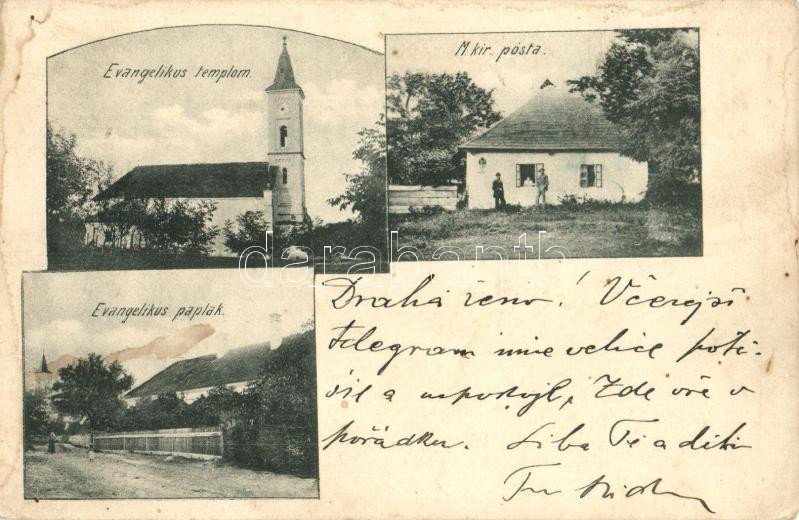 Evangelikus templom.
M. kir. pósta.
Evangelikus paplak.
darabanth
Drahá ženo! Včerejší
telegram mne velice potě-
šil a uspokojil, Zde vše v
pořádku. Líbá Tě a dítě